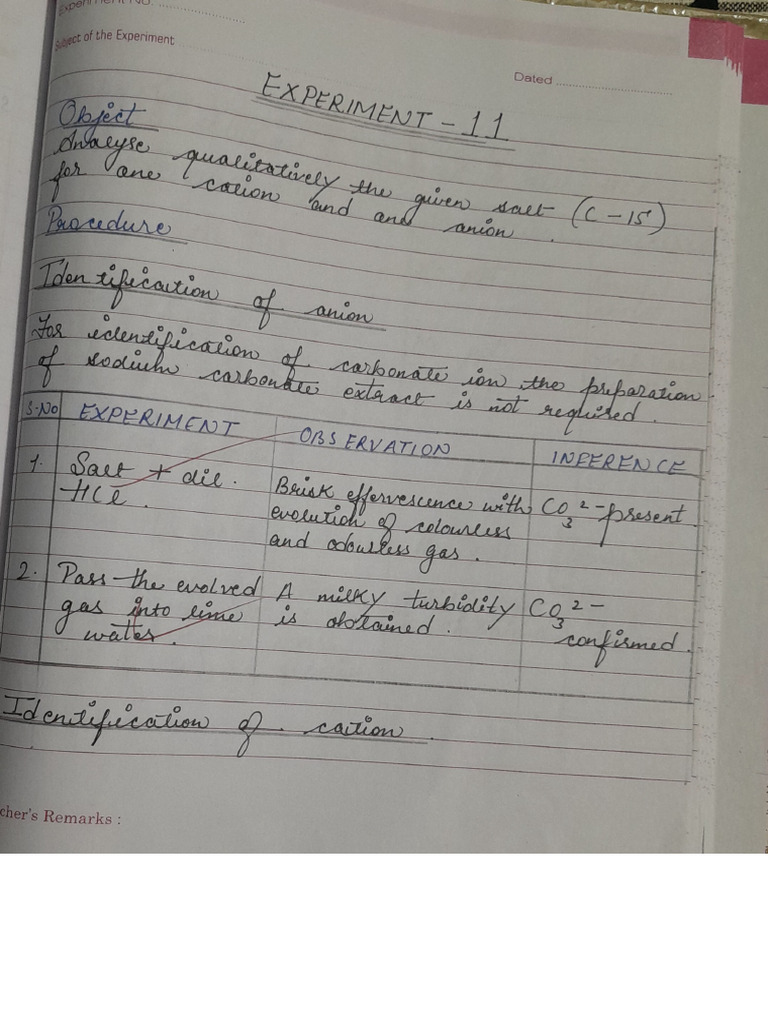 Experiment No.
Subject of the Experiment
Dated
EXPERIMENT - 11
Object
Analyse qualitatively the given salt (C-15)
for one cation and and anion.
Procedure
Identification of anion
For identification of carbonate ion, the preparation
of sodium carbonate extract is not required.
S.No EXPERIMENT OBSERVATION INFERENCE
1. Salt + dil. HCl. Brisk effervescence with evolution of colourless and odourless gas. CO3 2- present.
2. Pass the evolved gas into lime water. A milky turbidity is obtained. CO3 2- confirmed.
Identification of cation.
cher's Remarks :